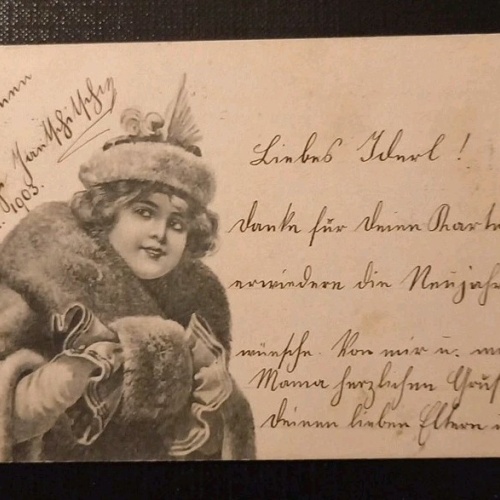 1903.
Liebes Iderl!
danke für deine Karte
erwiedere die Neujahr
wünsche. Von mir u.
Mama herzlichen Gruß
deinen lieben Eltern